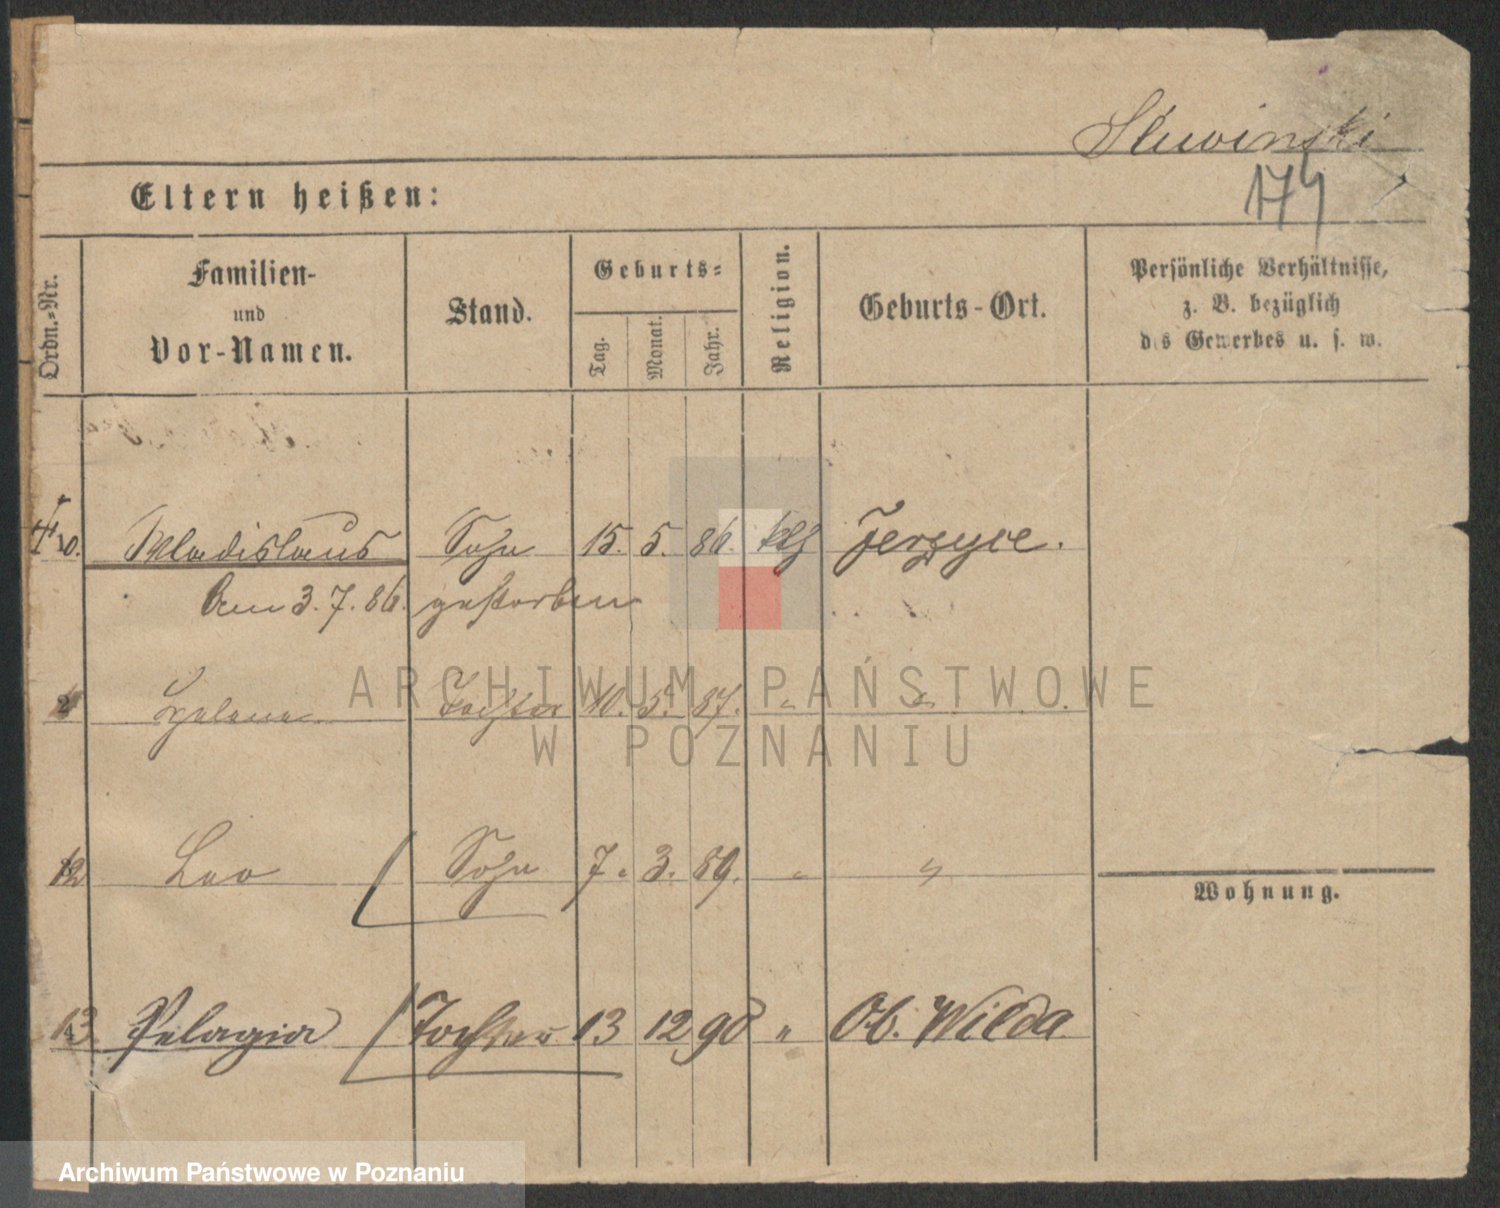 Sliwinski
174
Eltern heißen:
Ordn.=Nr.
Familien-
und
Vor-Namen.
Stand.
Geburts=
Tag.
Monat.
Jahr.
Religion.
Geburts-Ort.
Persönliche Verhältnisse,
z. B. bezüglich
des Gewerbes u. s. w.
10. Wladislaus Sohn 15. 5. 86. kth Jerzyce.
Am 3. 7. 86. gestorben
Helena Tochter 10. 5. 87. " "
12 Leo Sohn 7. 3. 89. " "
Wohnung.
13 Pelagia Tochter 13 12 90 " Ob. Wilda
ARCHIWUM PAŃSTWOWE
W POZNANIU
Archiwum Państwowe w Poznaniu